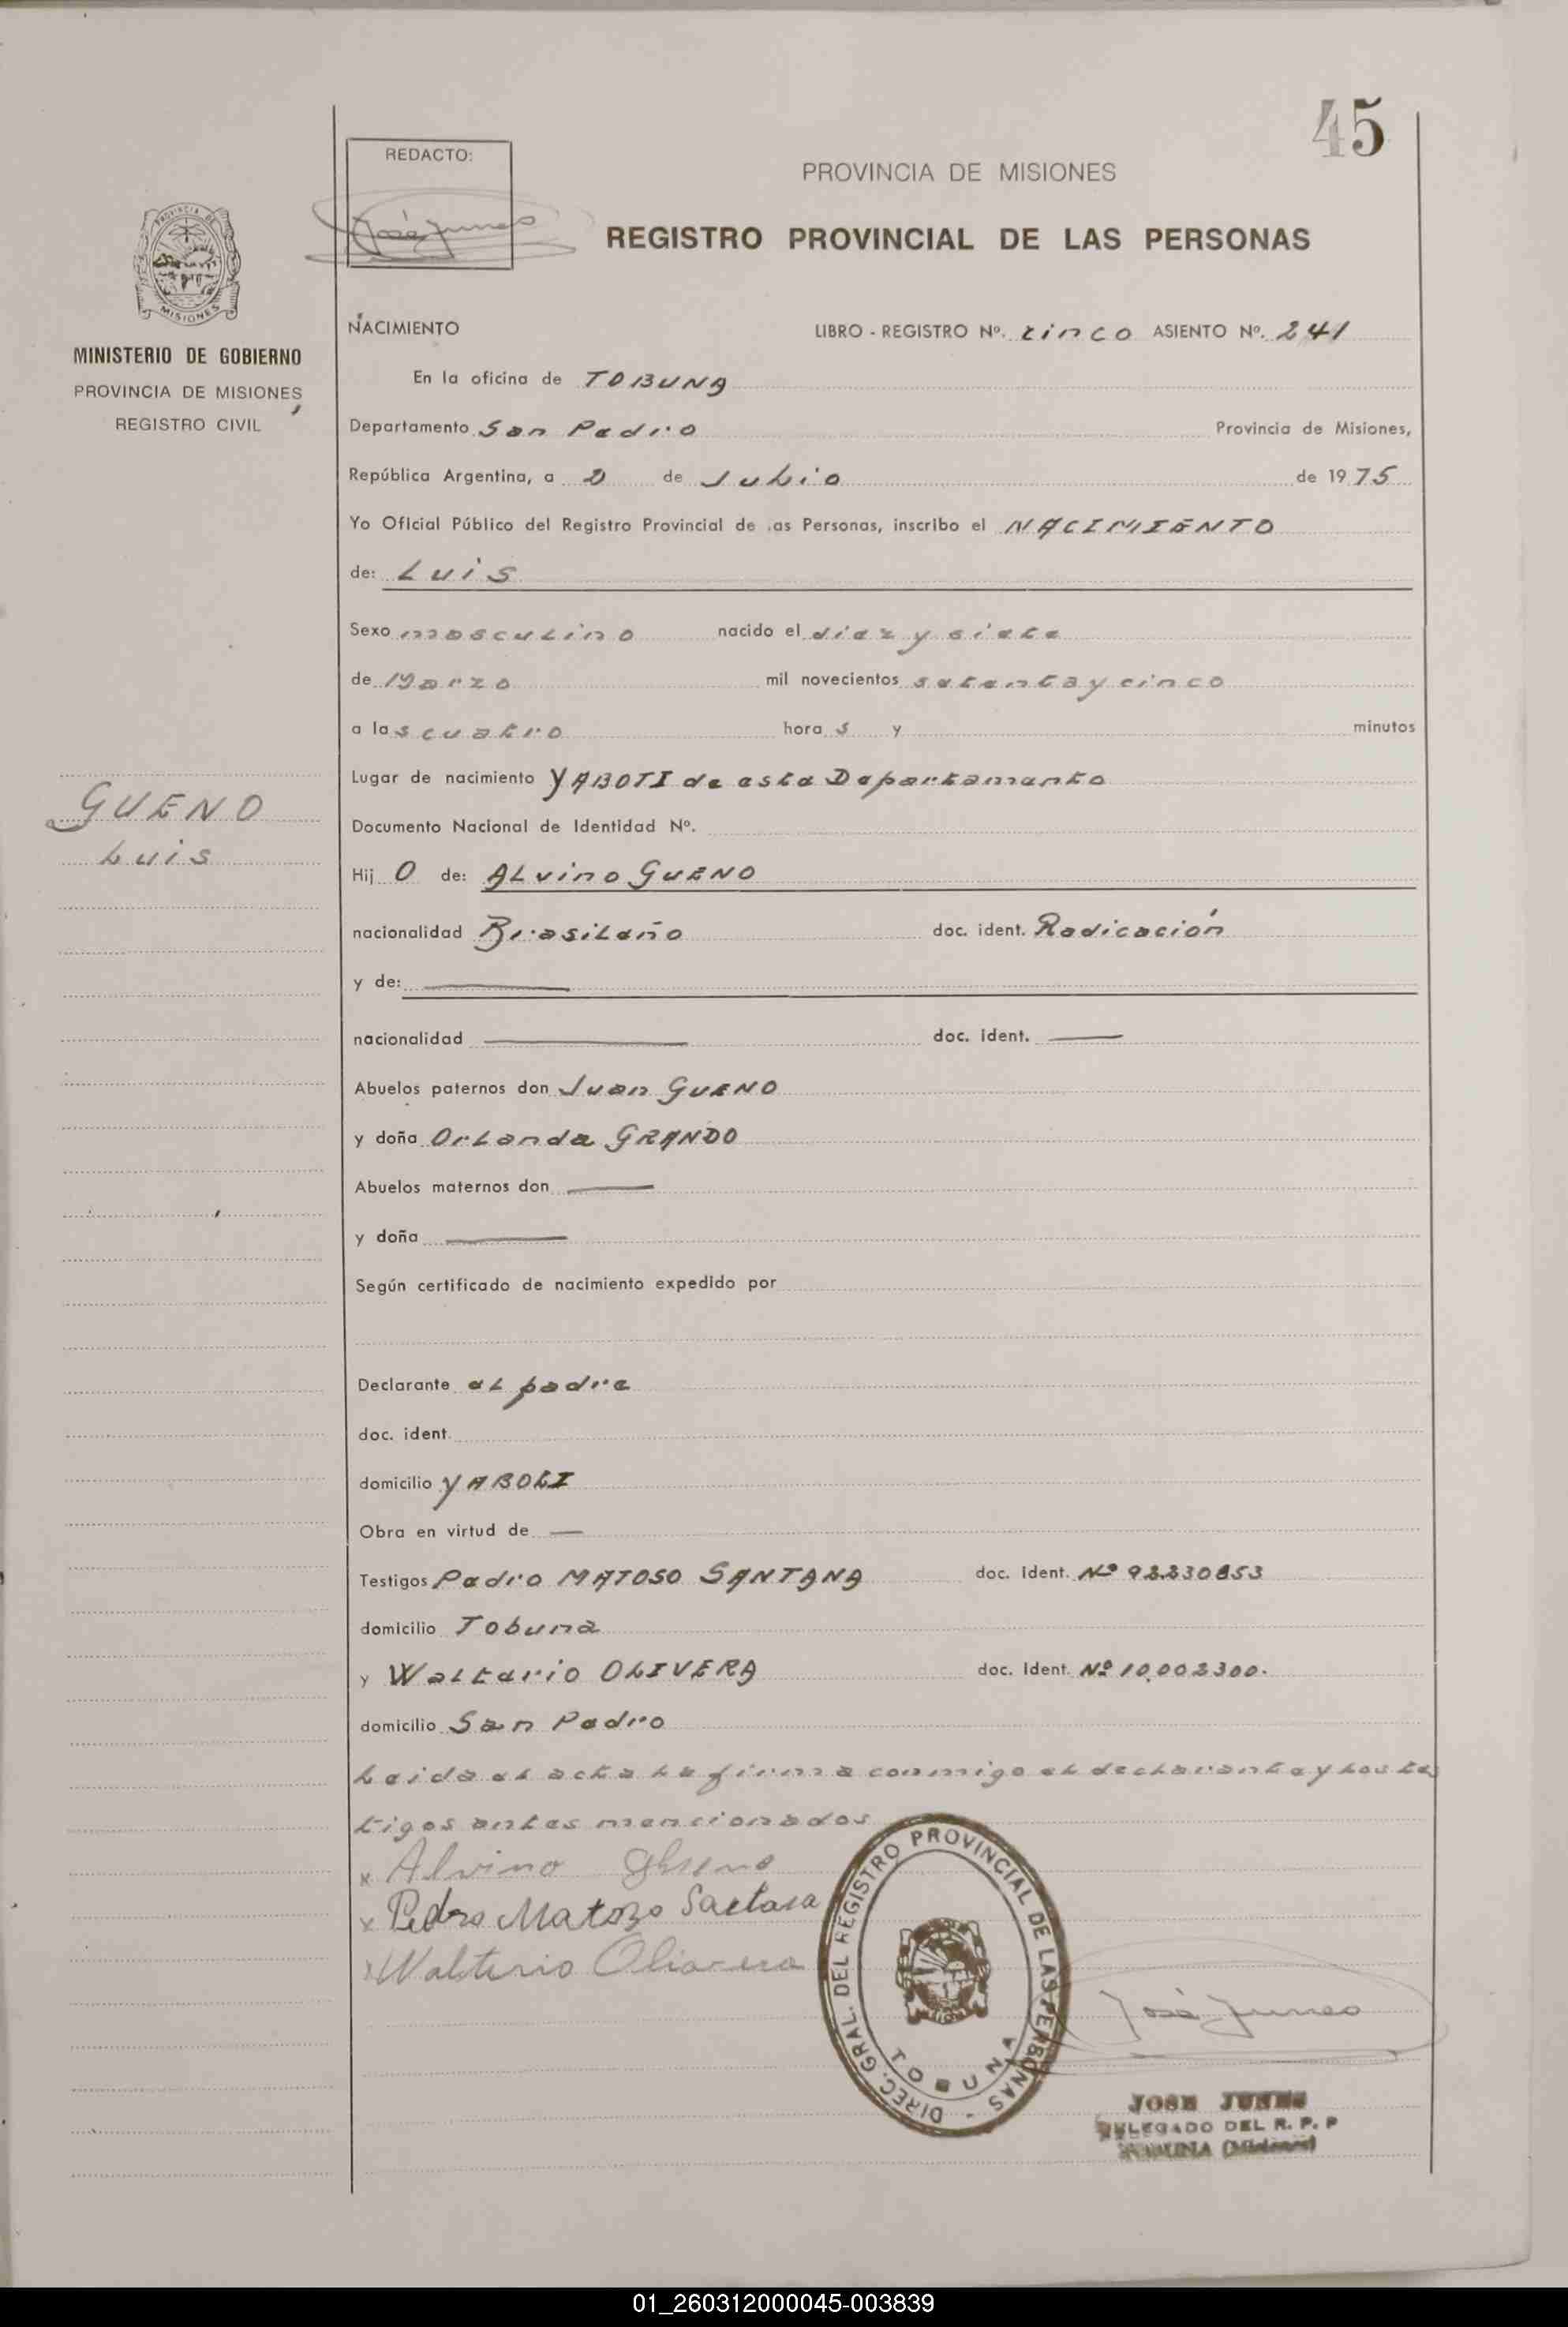 45
REDACTO:
José Junes
PROVINCIA DE MISIONES
REGISTRO PROVINCIAL DE LAS PERSONAS
PROVINCIA DE
MISIONES
MINISTERIO DE GOBIERNO
PROVINCIA DE MISIONES
REGISTRO CIVIL
NACIMIENTO LIBRO - REGISTRO Nº. cinco ASIENTO Nº. 241
En la oficina de TOBUNA
Departamento San Pedro Provincia de Misiones,
República Argentina, a 2 de Julio de 1975
Yo Oficial Público del Registro Provincial de las Personas, inscribo el NACIMIENTO
de: Luis
Sexo masculino nacido el diez y siete
de Marzo mil novecientos setenta y cinco
a las cuatro horas y minutos
Lugar de nacimiento YABOTI de este Departamento
GUENO
Luis
Documento Nacional de Identidad Nº.
Hijo de: ALvino GUENO
nacionalidad Brasileño doc. ident. Radicación
y de:
nacionalidad doc. ident.
Abuelos paternos don Juan GUENO
y doña Orlanda GRANDO
Abuelos maternos don
y doña
Según certificado de nacimiento expedido por
Declarante el padre
doc. ident.
domicilio YABOTI
Obra en virtud de
Testigos Pedro MATOSO SANTANA doc. Ident. Nº
domicilio Tobuna
y Walterio OLIVERA doc. Ident. Nº 10.002300.
domicilio San Pedro
Leida el acta la firma conmigo el declarante y los tes
tigos antes mencionados
x Alvino Gueno
x Pedro Matozo Santana
x Walterio Olivera
DIREC. GRAL. DEL REGISTRO PROVINCIAL DE LAS PERSONAS -
TOBUNA
José Junes
JOSE JUNES
DELEGADO DEL R. P. P
TOBUNA (Misiones)
01_260312000045-003839